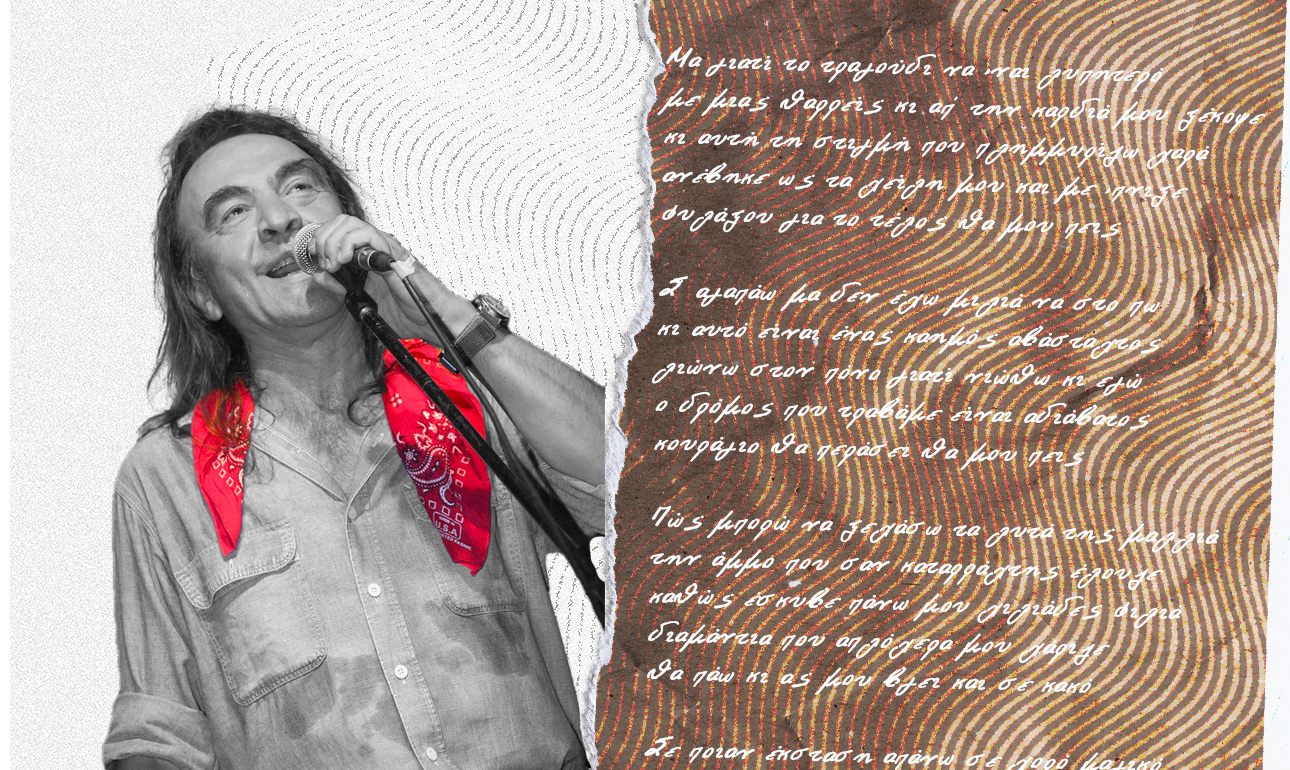 Μα γιατί το τραγούδι να 'ναι λυπητερό
με μιας θαρρείς κι απ' την καρδιά μου ξέκοψε
κι αυτή τη στιγμή που πλημμυρίζω χαρά
ανέβηκε ως τα χείλη μου και με 'πνιξε
φυλάξου για το τέλος θα μου πεις
Σ' αγαπάω μα δεν έχω μιλιά να στο πω
κι αυτό είναι ένας καημός αβάσταχτος
λιώνω στον πόνο γιατί νιώθω κι εγώ
ο δρόμος που τραβάμε είναι αδιάβατος
κουράγιο θα περάσει θα μου πεις
Πώς μπορώ να ξεχάσω τα λυτά της μαλλιά
την άμμο που σαν καταρράχτης έλουζε
καθώς έσκυβε πάνω μου χιλιάδες φιλιά
διαμάντια που απλόχερα μου χάριζε
θα πάω κι ας μου βγει και σε κακό
Σε ποιαν έκσταση απάνω σε χορό μαγικό
U.S.A